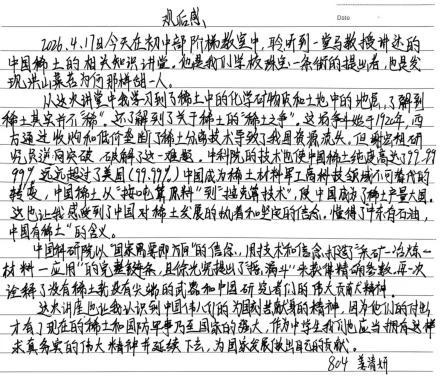 观后感
Date
2026.4.17日今天在初中部阶梯教室中,聆听到一堂马教授讲述的
中国稀土的相关知识讲堂,他是我们学校珠宝一条街的提出者,也是发
现洪山菜苔为何那样的一人。
从这次讲堂中我学习到了稀土中的化学研物质和土地中的地层,了解到
稀土其实并不"稀",还了解到了关于稀土的"稀土之争"。这场争斗始于1926年,西
方通过收购和低价垄断了稀土分离技术导致了我国资源流失。但谢宏组研
究员逆向突破,破解了这一难题,中科院的技术也使中国稀土纯度高达(99.99
99%远远超过了美国(99.99%)中国成为稀土材料军工高科技领域不可替代的
转变,中国稀土从"按吨算原料"到"按克算技术",使中国成为了稀土产量大国。
这也让我感受到了中国对稀土发展的执着和坚定的信念。懂得了"中东有石油,
中国有稀土"的含义。
中国科研院以"国家需要即方向"的信念,用技术和信念,打造了"采矿-冶炼-
材料-应用"的完整链条,且徐光宪提出了"漏斗"来教集精确参数,再一次
诠释了没有稀土就没有尖端的武器和中国研究者们的伟大贡献精神。
这次讲座也让我认识到中国伟人们的为国封献身的精神,因为他们的付出
才有了现在的稀土和国防军事乃至国家的强大,作为中学生我们也应当拥有这样
求真务实的伟大精神并延续下去,为国家发展做出自己的贡献。
804 姜清妍